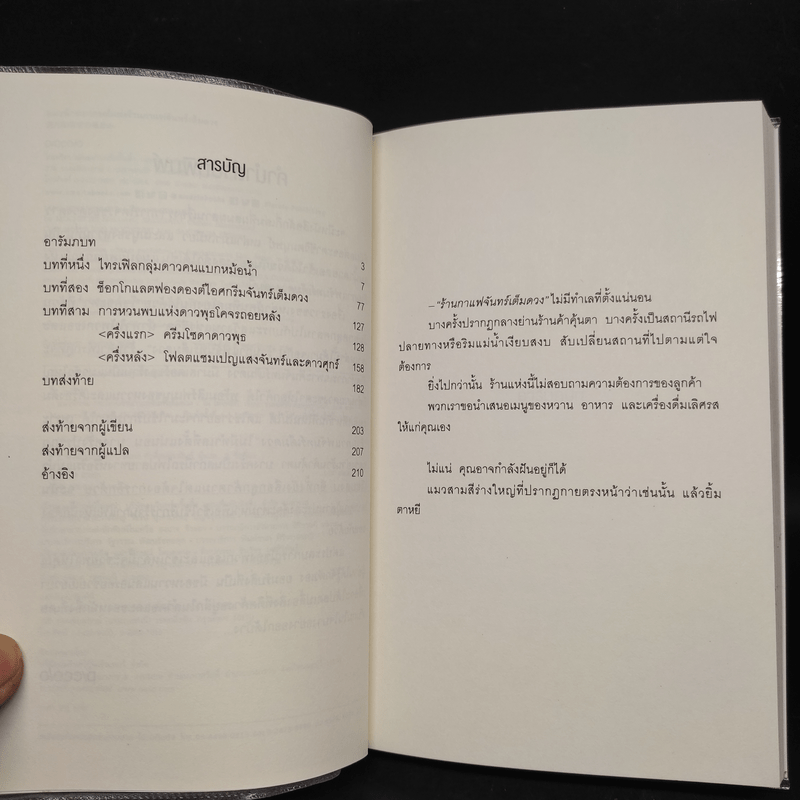 สารบัญ
อารัมภบท 3
บทที่หนึ่ง ไทรเฟิลกลุ่มดาวคนแบกหม้อน้ำ 7
บทที่สอง ช็อกโกแลตฟองดองต์ไอศกรีมจันทร์เต็มดวง 77
บทที่สาม การหวนพบแห่งดาวพุธโคจรถอยหลัง 127
<ครึ่งแรก> ครีมโซดาดาวพุธ 128
<ครึ่งหลัง> โฟลตแชมเปญแสงจันทร์และดาวศุกร์ 158
บทส่งท้าย 182
ส่งท้ายจากผู้เขียน 203
ส่งท้ายจากผู้แปล 207
อ้างอิง 210
– "ร้านกาแฟจันทร์เต็มดวง" ไม่มีทำเลที่ตั้งแน่นอน
บางครั้งปรากฏกลางย่านร้านค้าคุ้นตา บางครั้งเป็นสถานีรถไฟ
ปลายทางหรือริมแม่น้ำเงียบสงบ สับเปลี่ยนสถานที่ไปตามแต่ใจ
ต้องการ
ยิ่งไปกว่านั้น ร้านแห่งนี้ไม่สอบถามความต้องการของลูกค้า
พวกเราขอนำเสนอเมนูของหวาน อาหาร และเครื่องดื่มเลิศรส
ให้แก่คุณเอง
ไม่แน่ คุณอาจกำลังฝันอยู่ก็ได้
แมวสามสีร่างใหญ่ที่ปรากฏกายตรงหน้าว่าเช่นนั้น แล้วยิ้ม
ตาหยี